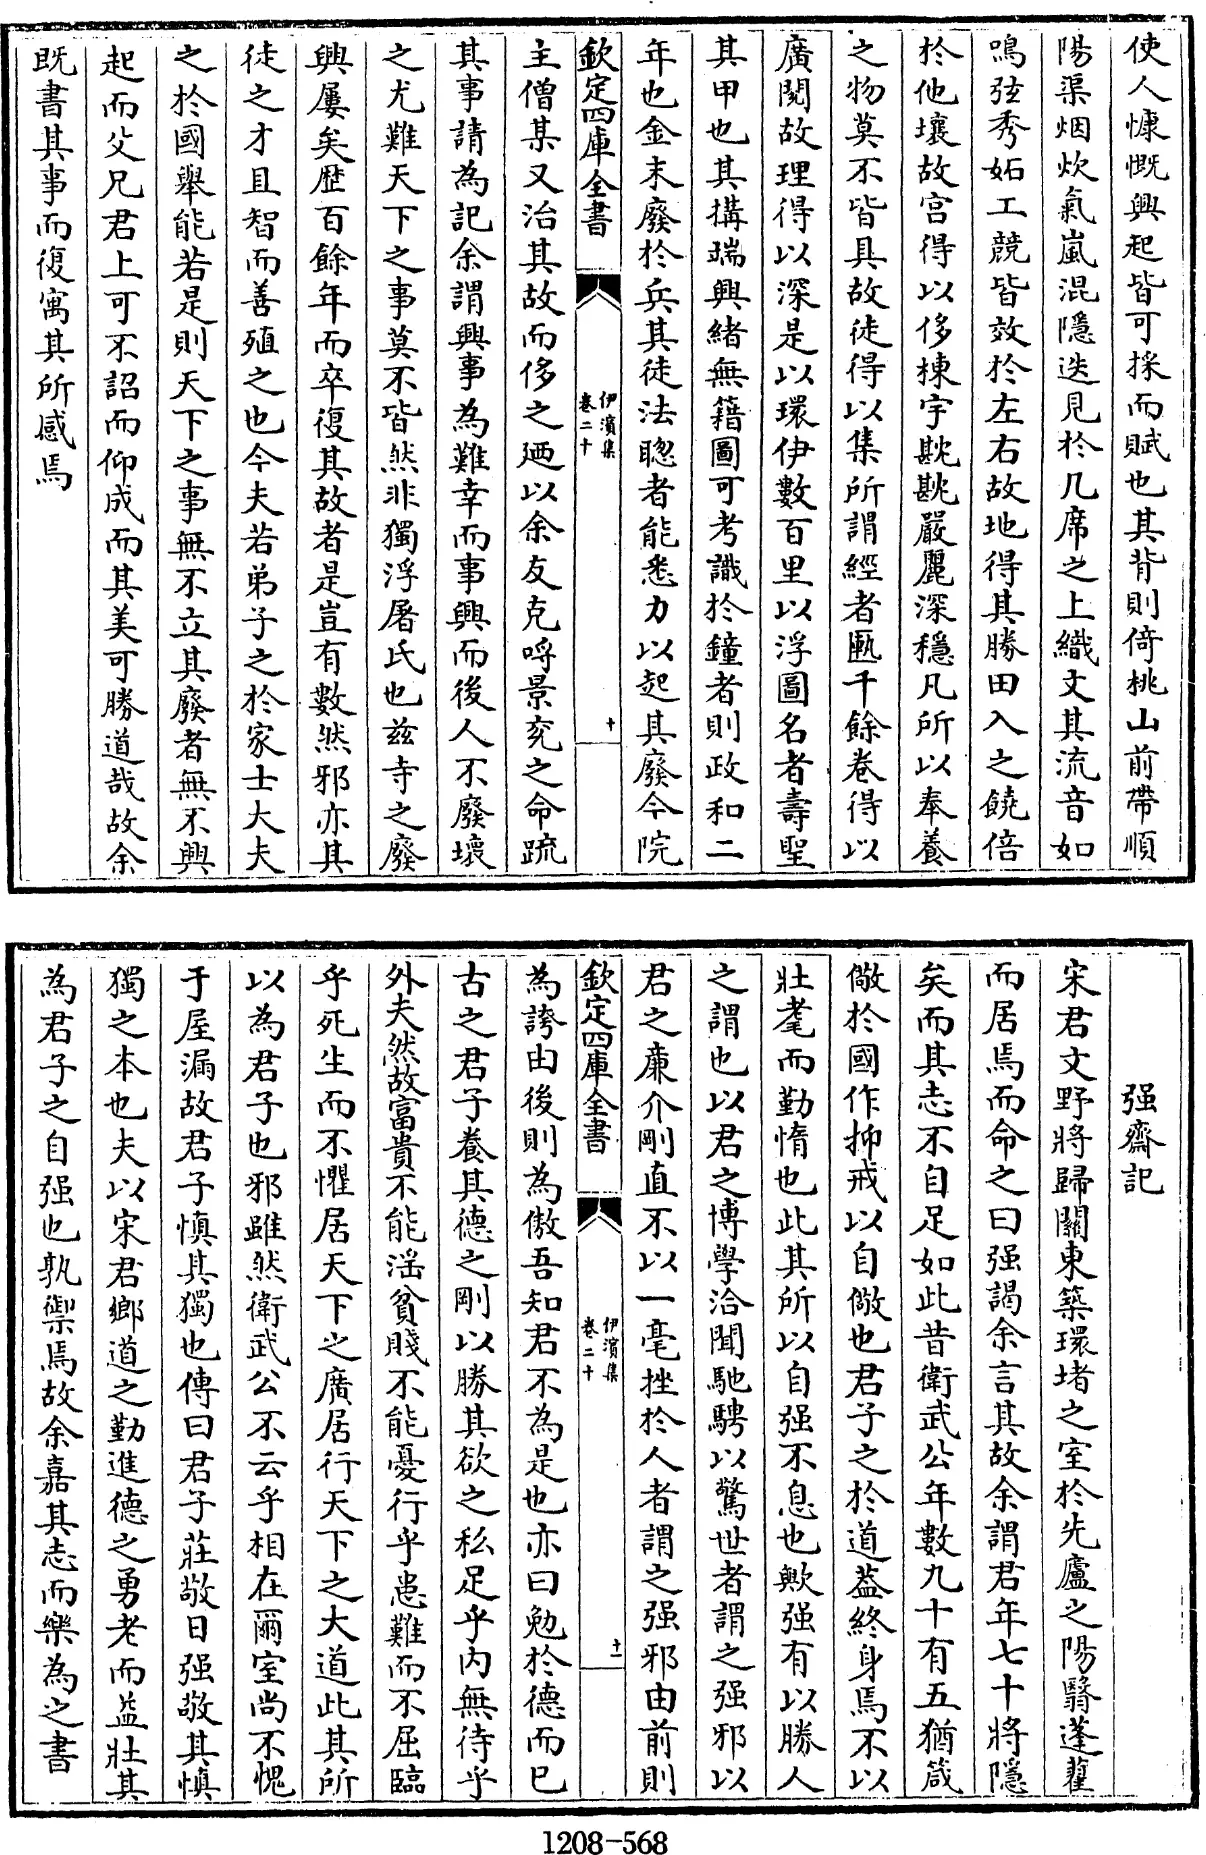 使人慷慨興起皆可採而賦也其背則倚桃山前帶順
陽渠烟炊氣嵐混隱迭見於几席之上織文其流音如
鳴弦秀妬工競皆效於左右故地得其勝田入之饒倍
於他壤故宫得以侈棟宇眈眈嚴麗深穩凡所以奉養
之物莫不皆具故徒得以集所謂經者匭千餘卷得以
廣閱故理得以深是以環伊數百里以浮圖名者壽聖
其甲也其搆端興緒無籍圖可考識於鐘者則政和二
年也金末廢於兵其徒法聰者能悉力以起其廢今院
欽定四庫全書
伊濱集
卷二十
十
主僧某又治其故而侈之廼以余友克哷景兖之命疏
其事請為記余謂興事為難幸而事興而後人不廢壞
之尤難天下之事莫不皆然非獨浮屠氏也兹寺之廢
興屢矣歴百餘年而卒復其故者是豈有數然邪亦其
徒之才且智而善殖之也今夫若弟子之於家士大夫
之於國舉能若是則天下之事無不立其廢者無不興
起而父兄君上可不詔而仰成而其美可勝道哉故余
既書其事而復寓其所感焉
强齋記
宋君文野將歸關東築環堵之室於先廬之陽翳蓬藋
而居焉而命之曰强謁余言其故余謂君年七十將隱
矣而其志不自足如此昔衛武公年數九十有五猶箴
儆於國作抑戒以自儆也君子之於道葢終身焉不以
壯耄而勤惰也此其所以自强不息也歟强有以勝人
之謂也以君之博學洽聞馳騁以驚世者謂之强邪以
君之亷介剛直不以一毫挫於人者謂之强邪由前則
欽定四庫全書
伊濱集
卷二十
十一
為誇由後則為傲吾知君不為是也亦曰勉於德而已
古之君子養其德之剛以勝其欲之私足乎内無待乎
外夫然故富貴不能滛貧賤不能憂行乎患難而不屈臨
乎死生而不懼居天下之廣居行天下之大道此其所
以為君子也邪雖然衛武公不云乎相在爾室尚不愧
于屋漏故君子慎其獨也傳曰君子莊敬日强敬其慎
獨之本也夫以宋君鄉道之勤進德之勇老而益壯其
為君子之自强也孰禦焉故余嘉其志而樂為之書
1208-568